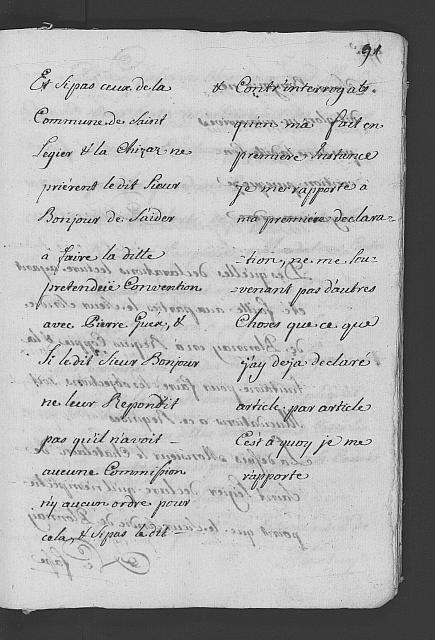 91
Et si pas ceux de la
Commune de Saint
Legier & la Chizaz ne
prièrent le dit Sieur
Bonjour de S'aider
à faire la ditte
pretendeüe Convention
avec Pierre Guex, &
Si le dit Sieur Bonjour
ne leur Repondit
pas qu'il n'avoit
aucune Commission
n'y aucun ordre pour
cela, & Si pas le dit
& Contr'interrogats.
qu'on m'a fait en
première Instance
Je me rapporte à
ma première declara-
-tion, ne me Sou-
-venant pas d'autres
Choses que ce que
j'ay deja declaré
article par article
C'est à quoy je me
rapporte